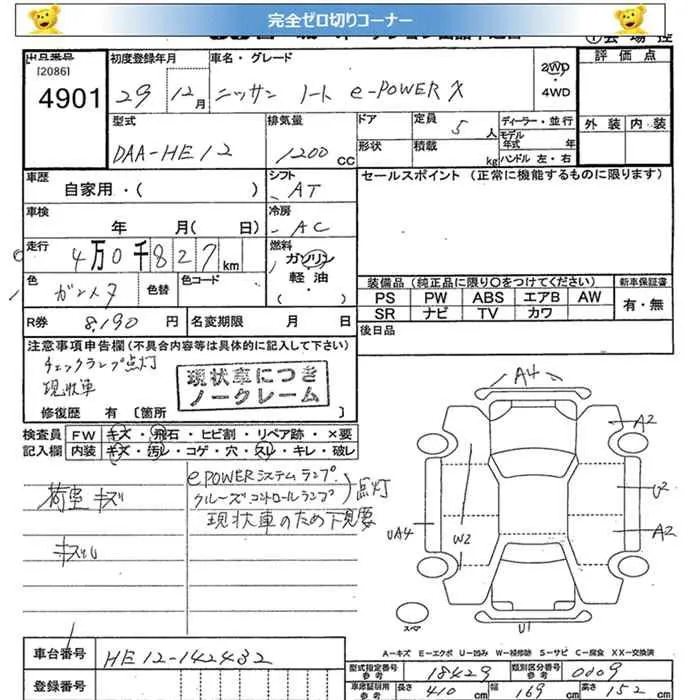 完全ゼロ切りコーナー
出品番号 初度登録年月 車名・グレード 2WD 評価点
[2086] 29 12月 ニッサン ノート e-POWER X 4WD
4901
型式 排気量 ドア 定員 5人 ディーラー・並行 外装 内装
DAA-HE12 1200cc 形状 積載 kg モデル年式 年
ハンドル 左・右
車歴 シフト セールスポイント (正常に機能するものに限ります)
自家用・( ) AT
車検 冷房
年 月( 日) AC
走行 燃料
4万0千827km ガソリン
色 ガンメタ 色替 色コード 軽油 装備品 (純正品に限り〇をつけてください) 新車保証書
・( ) PS PW ABS エアB AW 有・無
R券 8,190円 名変期限 月 日 SR ナビ TV カワ
後日品
注意事項申告欄 (不具合内容等は具体的に記入して下さい)
チェックランプ点灯
現状車
現状車につき
ノークレーム
修復歴 有 [箇所 ]
検査員 FW キズ・飛石・ヒビ割・リペア跡・×要
記入欄 内装 キズ・汚レ・コゲ・穴・スレ・キレ・破レ
荷室キズ
e POWERシステムランプ
クルーズコントロールランプ 点灯
現状車のため下見要
A4
A2
U2
A2
W2
W2
UA4
スペア
U1
A-キズ E-エクボ U-凹み W-補修跡 S-サビ C-腐食 XX-交換済
車台番号 HE12-142432
型式指定番号 参考 18429 類別区分番号 参考 0009
登録番号
車庫証明用 参考 長さ 410cm 幅 169cm 高さ 152cm